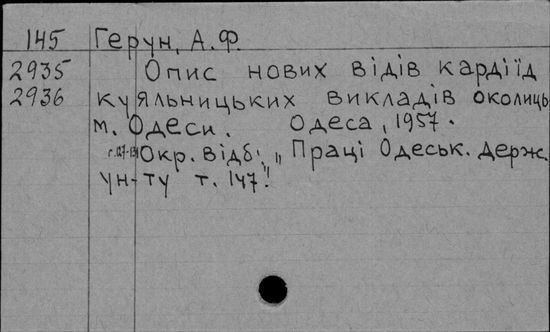 145 Герун, А.Ф.
2935 Опис нових відів кардіїд
2936 куяльницьких викладів околиць
м. Одеси. Одеса, 1957.
Окр. відб. „Праці Одеськ. держ.
ун-ту т. 147"